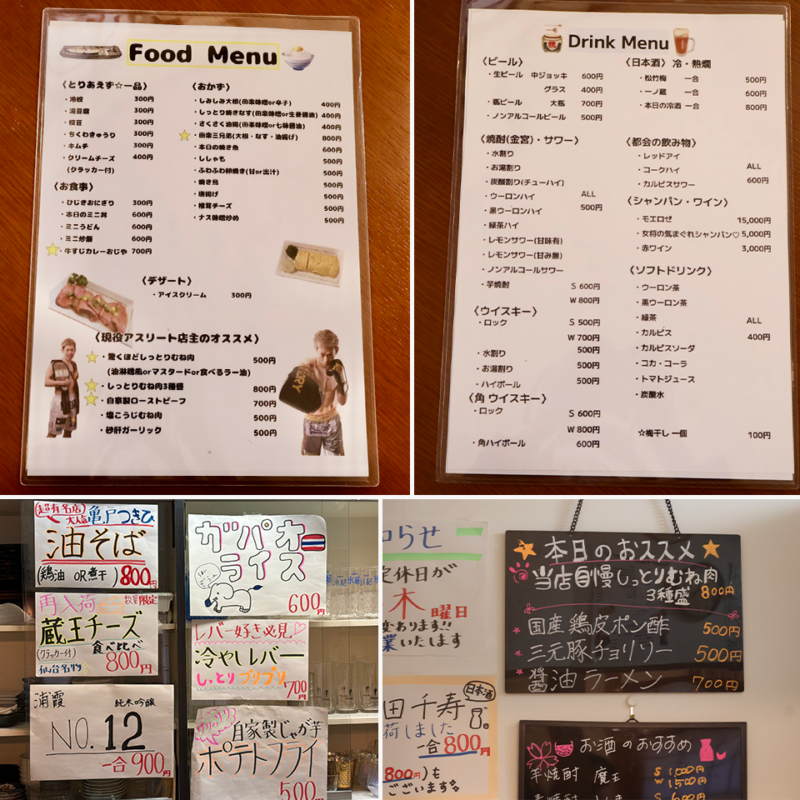 Food Menu
〈とりあえず☆一品〉
・冷奴 300円
・湯豆腐 300円
・枝豆 300円
・ちくわきゅうり 300円
・キムチ 300円
・クリームチーズ 400円
(クラッカー付)
〈お食事〉
・ひじきおにぎり 300円
・本日のミニ丼 600円
・ミニうどん 600円
・ミニ炒飯 600円
・牛すじカレーおじや 700円
〈おかず〉
・しみしみ大根(田楽味噌or辛子) 400円
・しっとり焼きなす(田楽味噌or生姜醤油) 400円
・さくさく油揚(田楽味噌or七味醤油) 400円
・田楽三兄弟(大根・なす・油揚げ) 800円
・本日の焼き魚 600円
・ししゃも 500円
・ふわふわ卵焼き(甘or出汁) 500円
・焼き鳥 500円
・唐揚げ 500円
・椎茸チーズ 500円
・ナス味噌炒め 500円
〈デザート〉
・アイスクリーム 300円
〈現役アスリート店主のオススメ〉
・驚くほどしっとりむね肉 500円
(油淋鶏風orマスタードor食べるラー油)
・しっとりむね肉3種盛 800円
・自家製ローストビーフ 700円
・塩こうじむね肉 500円
・砂肝ガーリック 500円
Drink Menu
〈ビール〉
・生ビール 中ジョッキ 600円
グラス 400円
・瓶ビール 大瓶 700円
・ノンアルコールビール 500円
〈焼酎(金宮)・サワー〉
・水割り
・お湯割り
・炭酸割り(チューハイ)
・ウーロンハイ ALL
・黒ウーロンハイ 500円
・緑茶ハイ
・レモンサワー(甘味有)
・レモンサワー(甘み無)
・ノンアルコールサワー
・芋焼酎 S 600円
W 800円
〈ウイスキー〉
・ロック S 500円
W 700円
・水割り 500円
・お湯割り 500円
・ハイボール 500円
〈角 ウイスキー〉
・ロック S 600円
W 800円
・角ハイボール 600円
〈日本酒〉 冷・熱燗
・松竹梅 一合 500円
・一ノ蔵 一合 600円
・本日の冷酒 一合 800円
〈都会の飲み物〉
・レッドアイ
・コークハイ ALL
・カルピスサワー 600円
〈シャンパン・ワイン〉
・モエロゼ 15,000円
・女将の気まぐれシャンパン♡ 5,000円
・赤ワイン 3,000円
〈ソフトドリンク〉
・ウーロン茶
・黒ウーロン茶
・緑茶 ALL
・カルピス 400円
・カルピスソーダ
・コカ・コーラ
・トマトジュース
・炭酸水
☆梅干し 一個 100円
超有名店
大塩 亀戸つきひ
油そば
(鶏油 OR 煮干) 800円
再入荷 数量限定
蔵王チーズ
(クラッカー付) 食べ比べ
仙台名物 800円
浦霞 純米吟醸
NO. 12
一合 900円
ガパオ
ライス
600円
レバー好き必見
冷やしレバー
しっとりプリプリ
700円
自家製じゃが芋
ポテトフライ
500円
らせ
定休日が
木曜日
変わります!!
業いたします
田 千寿 日本酒
荷しました
一合 800円
800円)も
ございます
本日のおススメ
当店自慢しっとりむね肉
3種盛 800円
国産鶏皮ポン酢 500円
三元豚チョリソー 500円
醤油ラーメン 700円
お酒のおすすめ
芋焼酎 魔王 S 1,000円
W 1,500円
S 600円